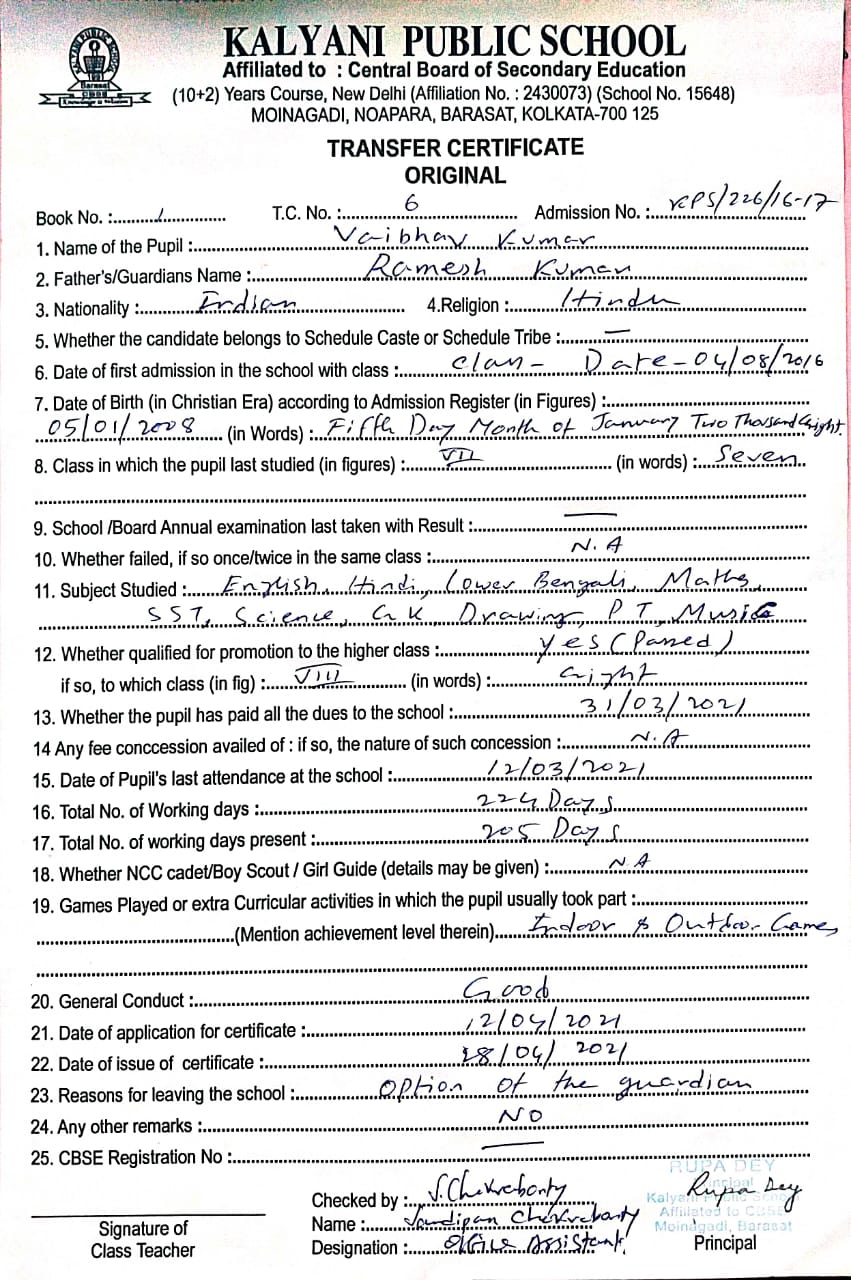 KALYANI PUBLIC SCHOOL
Affiliated to : Central Board of Secondary Education
(10+2) Years Course, New Delhi (Affiliation No. : 2430073) (School No. 15648)
MOINAGADI, NOAPARA, BARASAT, KOLKATA-700 125
KALYANI PUBLIC SCHOOL
Barasat
TRANSFER CERTIFICATE
ORIGINAL
Book No. : 1 T.C. No. : 6 Admission No. : KPS/226/16-17
1. Name of the Pupil : Vaibhav Kumar
2. Father's/Guardians Name : Ramesh Kumar
3. Nationality : Indian 4.Religion : Hindu
5. Whether the candidate belongs to Schedule Caste or Schedule Tribe : —
6. Date of first admission in the school with class : Class - Date - 04/08/2016
7. Date of Birth (in Christian Era) according to Admission Register (in Figures) :
05/01/2008 (in Words) : Fifth Day Month of January Two Thousand Eight.
8. Class in which the pupil last studied (in figures) : VII (in words) : Seven
9. School /Board Annual examination last taken with Result : —
10. Whether failed, if so once/twice in the same class : N.A
11. Subject Studied : English, Hindi, Lower Bengali, Maths,
SST, Science, G K, Drawing, P T, Music
12. Whether qualified for promotion to the higher class : Yes (Passed)
if so, to which class (in fig) : VIII (in words) : Eight
13. Whether the pupil has paid all the dues to the school : 31/03/2021
14 Any fee conccession availed of : if so, the nature of such concession : N.A
15. Date of Pupil's last attendance at the school : 12/03/2021
16. Total No. of Working days : 224 Days
17. Total No. of working days present : 205 Days
18. Whether NCC cadet/Boy Scout / Girl Guide (details may be given) : N A
19. Games Played or extra Curricular activities in which the pupil usually took part :
(Mention achievement level therein) Indoor & Outdoor Games
20. General Conduct : Good
21. Date of application for certificate : 12/04/2021
22. Date of issue of certificate : 28/04/2021
23. Reasons for leaving the school : Option of the guardian
24. Any other remarks : NO
25. CBSE Registration No : —
RUPA DEY
Principal
Kalyani Public School
Affiliated to CBSE
Moinagadi, Barasat
Rupa Dey
Principal
Checked by : S. Chakraborty
Name : Sandipan Chakraborty
Designation : Office Assistant.
Signature of
Class Teacher